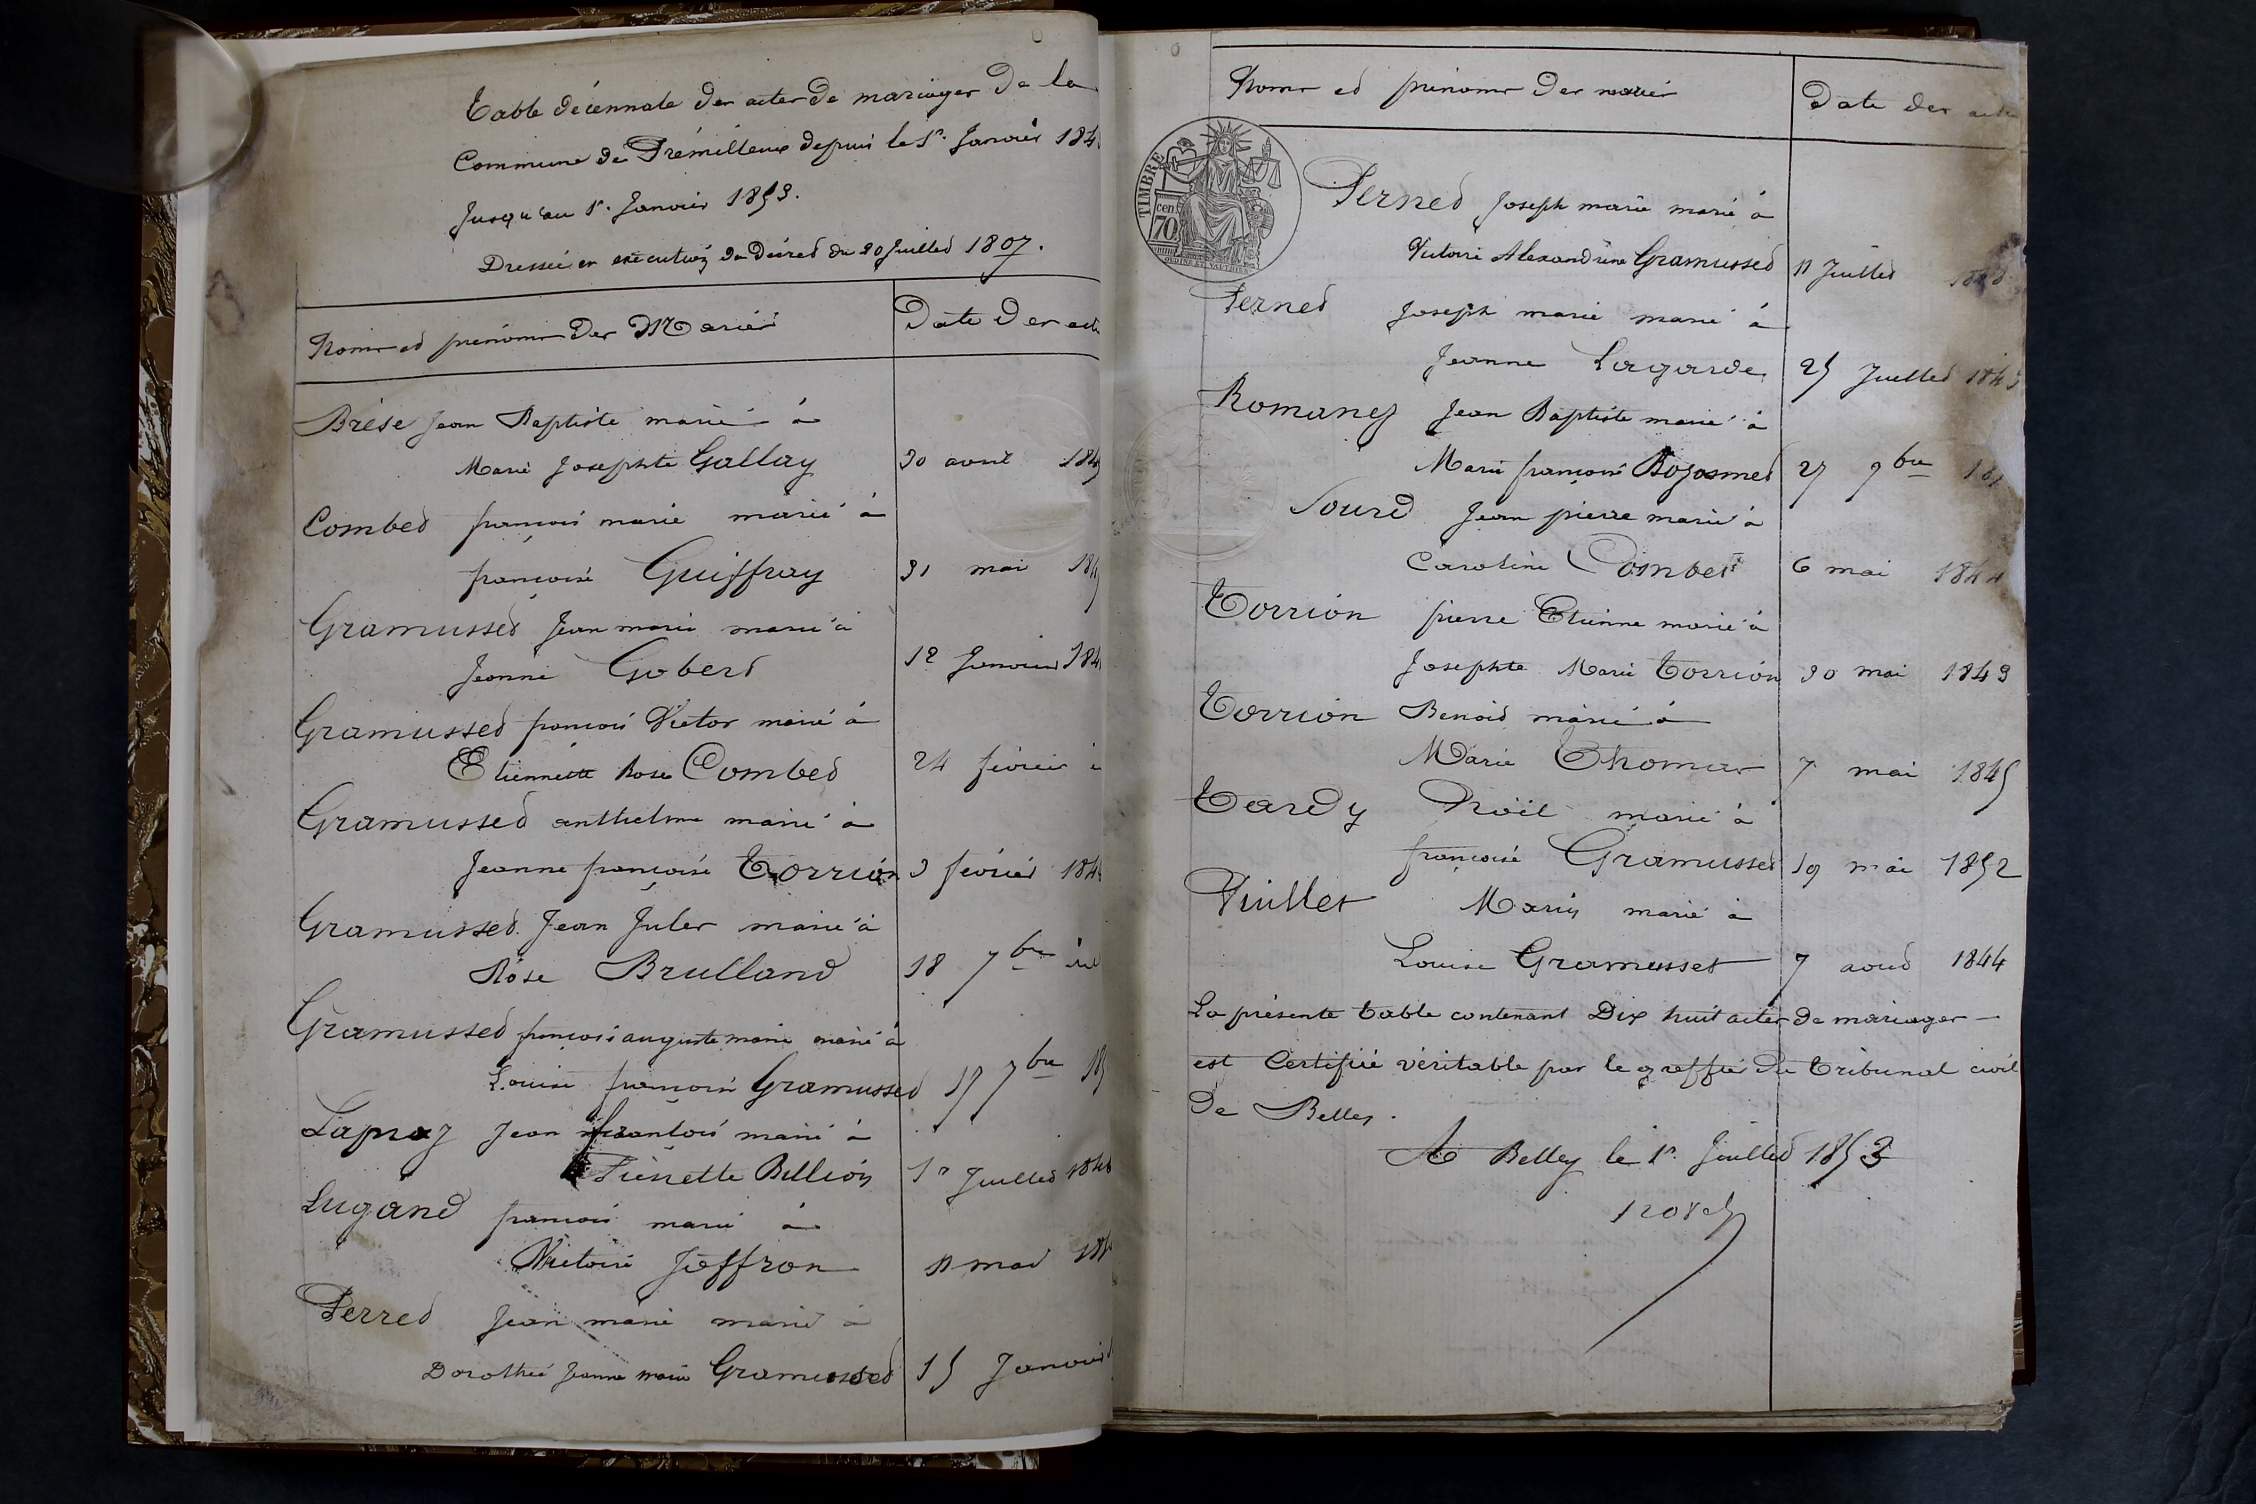 Table décennale des actes de mariages De la
Commune de Prémillieux depuis le 1r. Janvier 184
Jusqu'au 1r. Janvier 1853.
Dressée en exécution du Décret du 20 Juillet 1807.
Noms et prénoms Des Mariés
Date Des act
Brése Jean Baptiste marié à
Marie Josephte Gallay 30 avril 184
Combet françois marie marié à
françoise Guiffray 31 mai 184
Gramusset Jean marie marié à
Jeanne Gobert 12 Janvier 184
Gramusset françois Victor marié à
Etiennette Rose Combet 24 février
Gramusset anthelme marié à
Jeanne françoise Torrion 3 février 184
Gramusset Jean Jules marié à
Rose Brulland 18 7bre
Gramusset françois auguste marie marié à
Louise françoise Gramusset 17 7bre 18
Lapraz Jean françois marié à
Pierrette Billion 1r Juillet 184
Lugand françois marié à
Victoire Joffron 11 mai 18
Perret Jean marie marié à
Dorothée Jeanne marie Gramusset 15 Janvier
Noms et prénoms Des mariés
Date Des act
TIMBRE
cen
70
Pernet Joseph marie marié à
Victoire Alexandrine Gramusset 11 Juillet
Pernet Joseph marie marié à
Jeanne Lagarde 25 Juillet 184
Romaney Jean Baptiste marié à
Marie françoise 27 9bre
Sourd Jean pierre marié à
Caroline Combet 6 mai 1844
Torrion pierre Etienne marié à
Josephte Marie Torrion 30 mai 1843
Torrion Benoit marié à
Marie Thomas 7 mai 1845
Tardy Noël marié à
françoise Gramusset 19 mai 1852
Vuillet Marin marié à
Louise Gramusset 7 aout 1844
La présente table contenant Dix huit actes de mariages
est Certifiée véritable par le greffier du tribunal civil
De Belley.
A Belley le 1r. Juillet 1853